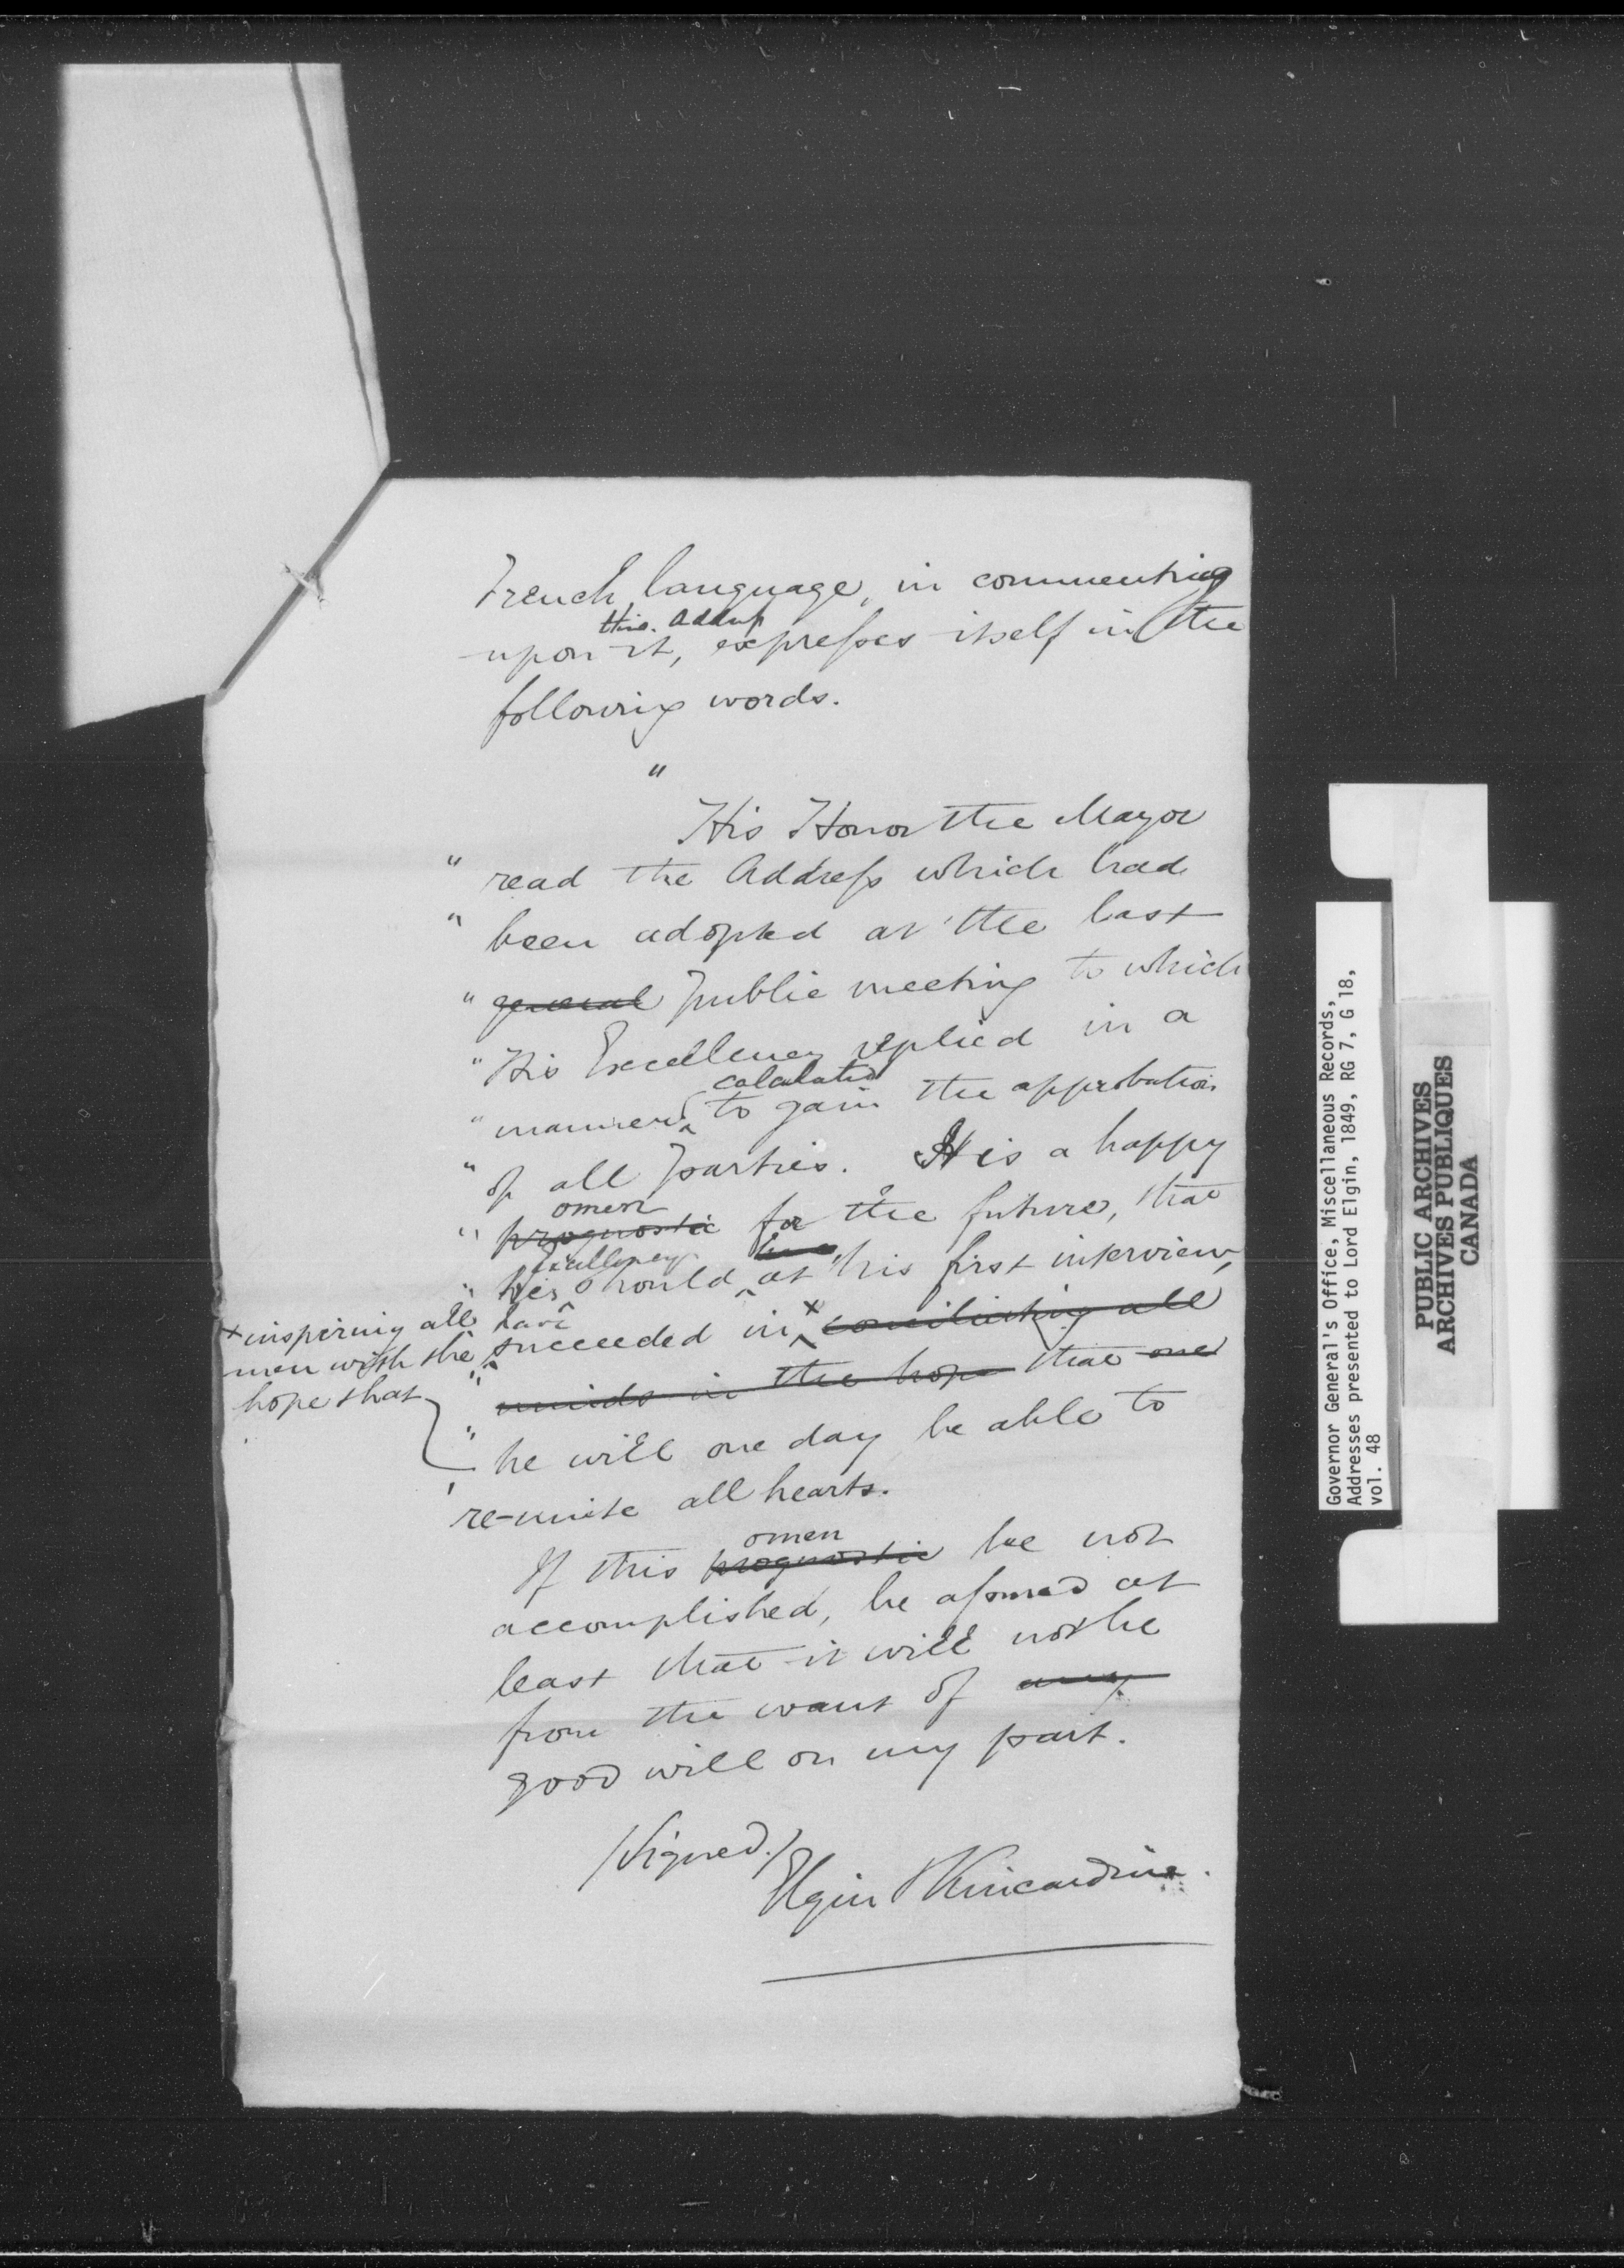 French language, in commenting
this. Address
upon it, expresses itself in the
following words.
"
His Honor the Mayor
" read the Address which had
" been adopted at the last
" general public meeting to which
" His Excellency replied in a
calculated
" manner to gain the approbation
" of all parties. It is a happy
omen
" prognostic for the future, that
Excellency
" His should at his first interview,
have
" succeeded in x conciliating all
x inspiring all
men with the
hope that
" minds in the hope that one
" he will one day be able to
re-unite all hearts.
omen
If this prognostic be not
accomplished, be assured at
least that it will not be
from the want of any
good will on my part.
/Signed./
Elgin & Kincardine.
Governor General's Office, Miscellaneous Records,
Addresses presented to Lord Elgin, 1849, RG 7, G 18,
vol. 48
PUBLIC ARCHIVES
ARCHIVES PUBLIQUES
CANADA